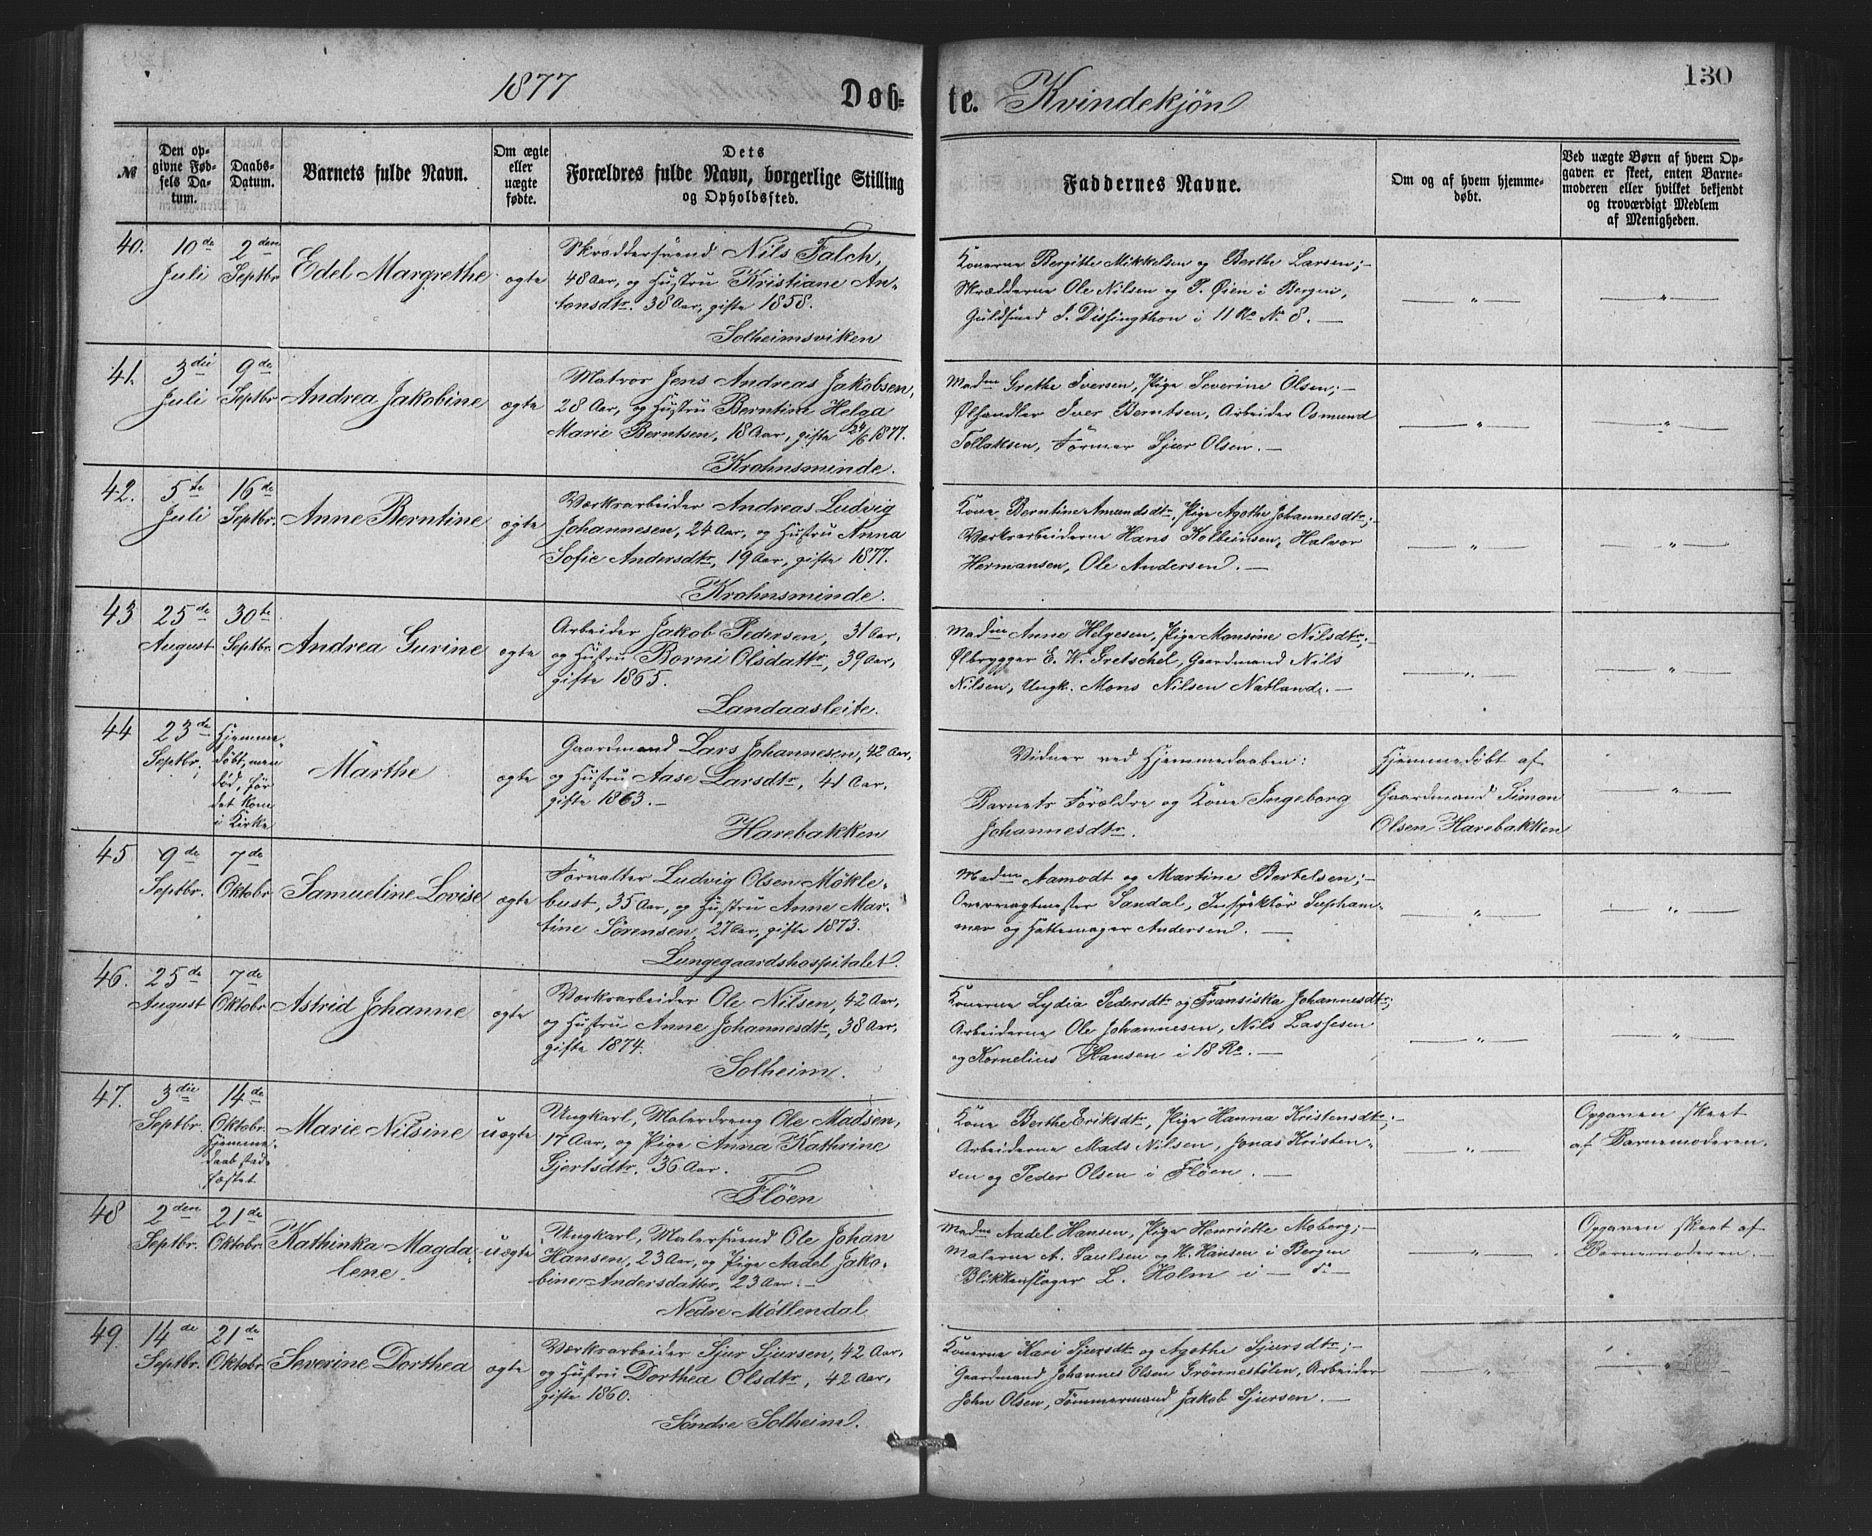 1877
Døb-
te. Kvindekjøn
130
№
Den op-
givne Fød-
sels Da-
tum.
Daabs-
Datum.
Barnets fulde Navn.
Om ægte
eller
uægte
fødte.
Dets
Forældres fulde Navn, borgerlige Stilling
og Opholdssted.
Faddernes Navne.
Om og af hvem hjemme-
døbt.
Ved uægte Børn af hvem Op-
gaven er skeet, enten Barne-
moderen eller hvilket bekjendt
og troværdigt Medlem
af Menigheden.
40.
10de
Juli
2den
Septbr
Edel Margrethe
ægte
Skræddersvend Nils Falch,
48 Aar, og Hustru Kristiane An-
tonsdtr. 38 Aar, gifte 1858.
Solheimsviken
Konerne Bergitte Mikkelsen og Berthe Larsen;-
Skrædderne Ole Nilsen og P. Øien i Bergen,
Guldsmed J. Dissingthon i 11 Ro N. 8. —
— " —
— " —
41.
3die
Juli
9de
Septbr
Andrea Jakobine
ægte
Matros Jens Andreas Jakobsen,
28 Aar, og Hustru Berntine Helga
Marie Berntsen, 18 Aar, gifte 24/6 1877.
Krohnsminde.
Madme Grethe Iversen, Pige Severine Olsen;-
Ølhandler Iver Berntsen, Arbeider Osmund
Tollaksen, Former Sjur Olsen. —
— " —
— " —
42.
5te
Juli
16de
Septbr.
Anne Berntine
ægte
Værksarbeider Andreas Ludvig
Johannesen, 24 Aar, og Hustru Anna
Sofie Andersdtr, 19 Aar, gifte 1877.
Krohnsminde.
Kone Berntine Amundsdtr, Pige Agathe Johannesdtr;
Værksarbeiderne Hans Kolbeinsen, Halvor
Hermansen, Ole Andersen. —
— " —
— " —
43
25de
August
30te
Septbr.
Andrea Gurine
ægte
Arbeider Jakob Pedersen, 31 Aar,
og Hustru Borni Olsdattr, 39 Aar,
gifte 1865.
Landaasleite.
Madme Anne Helgesen, Pige Monsine Nilsdtr;-
Ølbrygger E. W. Gretschel, Gaardmand Nils
Nilsen, Ungk. Mons Nilsen Natland. —
— " —
— " —
44
23de
Septbr.
Hjemme-
døbt, men
død, før
det kom
i Kirke
Marthe
ægte
Gaardmand Lars Johannesen, 42 Aar,
og Hustru Aase Larsdtr, 41 Aar,
gifte 1863. —
Harebakken
Vidner ved Hjemmedaaben:
Barnets Forældre og Kone Ingeborg
Johannesdtr.
Hjemmedøbt af
Gaardmand Simon
Olsen Harebakken
— " —
45
9de
Septbr.
7de
Oktobr
Samueline Lovise
ægte
Forvalter Ludvig Olsen Møkle-
bust, 35 Aar, og Hustru Anne Mar-
tine Sørensen, 27 Aar, gifte 1873.
Lungegaardshospitalet.
Madme Aamodt og Martine Bertelsen;-
Overvagtmester Sandal, Inspektør Supham-
mer og Hattemager Andersen. —
— " —
— " —
46.
25de
August
7de
Oktobr
Astrid Johanne
ægte
Værksarbeider Ole Nilsen, 42 Aar,
og Hustru Anne Johannesdtr, 38 Aar,
gifte 1874.
Solheim.
Konerne Lydia Pedersdtr og Fransiska Johannesdtr;
Arbeiderne Ole Johannesen, Nils Lassesen
og Kornelius Hansen i 18 Ro. —
— " —
— " —
47.
3die
Septbr.
14de
Oktobr.
Hjemme-
daab stad-
fæstet
Marie Nilsine
uægte
Ungkarl, Malerdreng Ole Madsen,
17 Aar, og Pige Anna Kathrine
Gjertsdtr. 36 Aar.
Fløen
Kone Berthe Eriksdtr, Pige Hanna Kristensdtr;-
Arbeiderne Mads Nilsen, Jonas Kristen-
sen og Peder Olsen i Fløen. —
— " —
Opgaven skeet
af Barnemoderen.
48
2den
Septbr.
21de
Oktobr.
Kathinka Magda-
lene.
uægte
Ungkarl, Malersvend Ole Johan
Hansen, 23 Aar, og Pige Aadel Jako-
bine Andersdatter, 23 Aar. —
Nedre Møllendal
Madme Aadel Hansen, Pige Henriette Moberg;-
Malerne A. Paulsen og H. Hansen i Bergen
Blikkenslager L. Holm i — d. —
— " —
Opgaven skeet af
Barnemoderen.
49.
14de
Septbr.
21de
Oktobr.
Severine Dorthea
ægte
Værksarbeider Sjur Sjursen, 42 Aar,
og Hustru Dorthea Olsdtr, 42 Aar,
gifte 1860.
Søndre Solheim.
Konerne Kari Sjursdtr og Agathe Sjursdtr;-
Gaardmand Johannes Olsen Grønnestølen, Arbeider
John Olsen, Tømmermand Jakob Sjursen. —
— " —
— " —